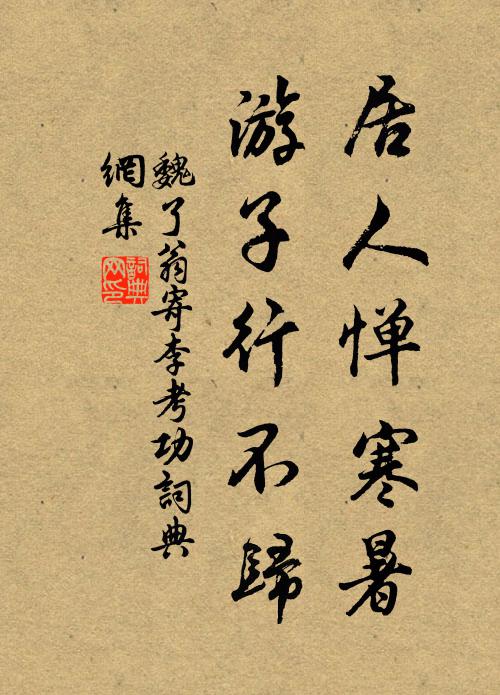 居人惮寒暑
游子行不歸
魏了翁寄李考功詞典
網集
詞典
网印